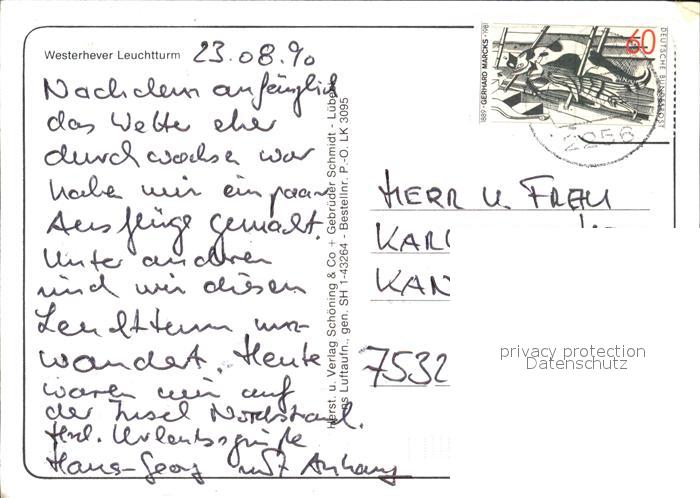 Westerhever Leuchtturm 23.08.90
Nachdem anfänglich
das Wetter eher
durchwachsen war
haben wir ein paar
Ausflüge gemacht.
Unter anderen
sind wir diesen
Leuchtturm um-
wandert. Heute
waren wir auf
der Insel Nordstrand.
Hrl. Urlaubsgrüße
Hans-Georg mit Anhang
Herst. u. Verlag Schöning & Co + Gebrüder Schmidt - Lübeck
Luftaufn., gen. SH 1-43264 - Bestellnr. P.-O. LK 3095
1889 · GERHARD MARCKS · 1981
60
DEUTSCHE BUNDESPOST
2256
HERR U. FRAU
7532
privacy protection
Datenschutz